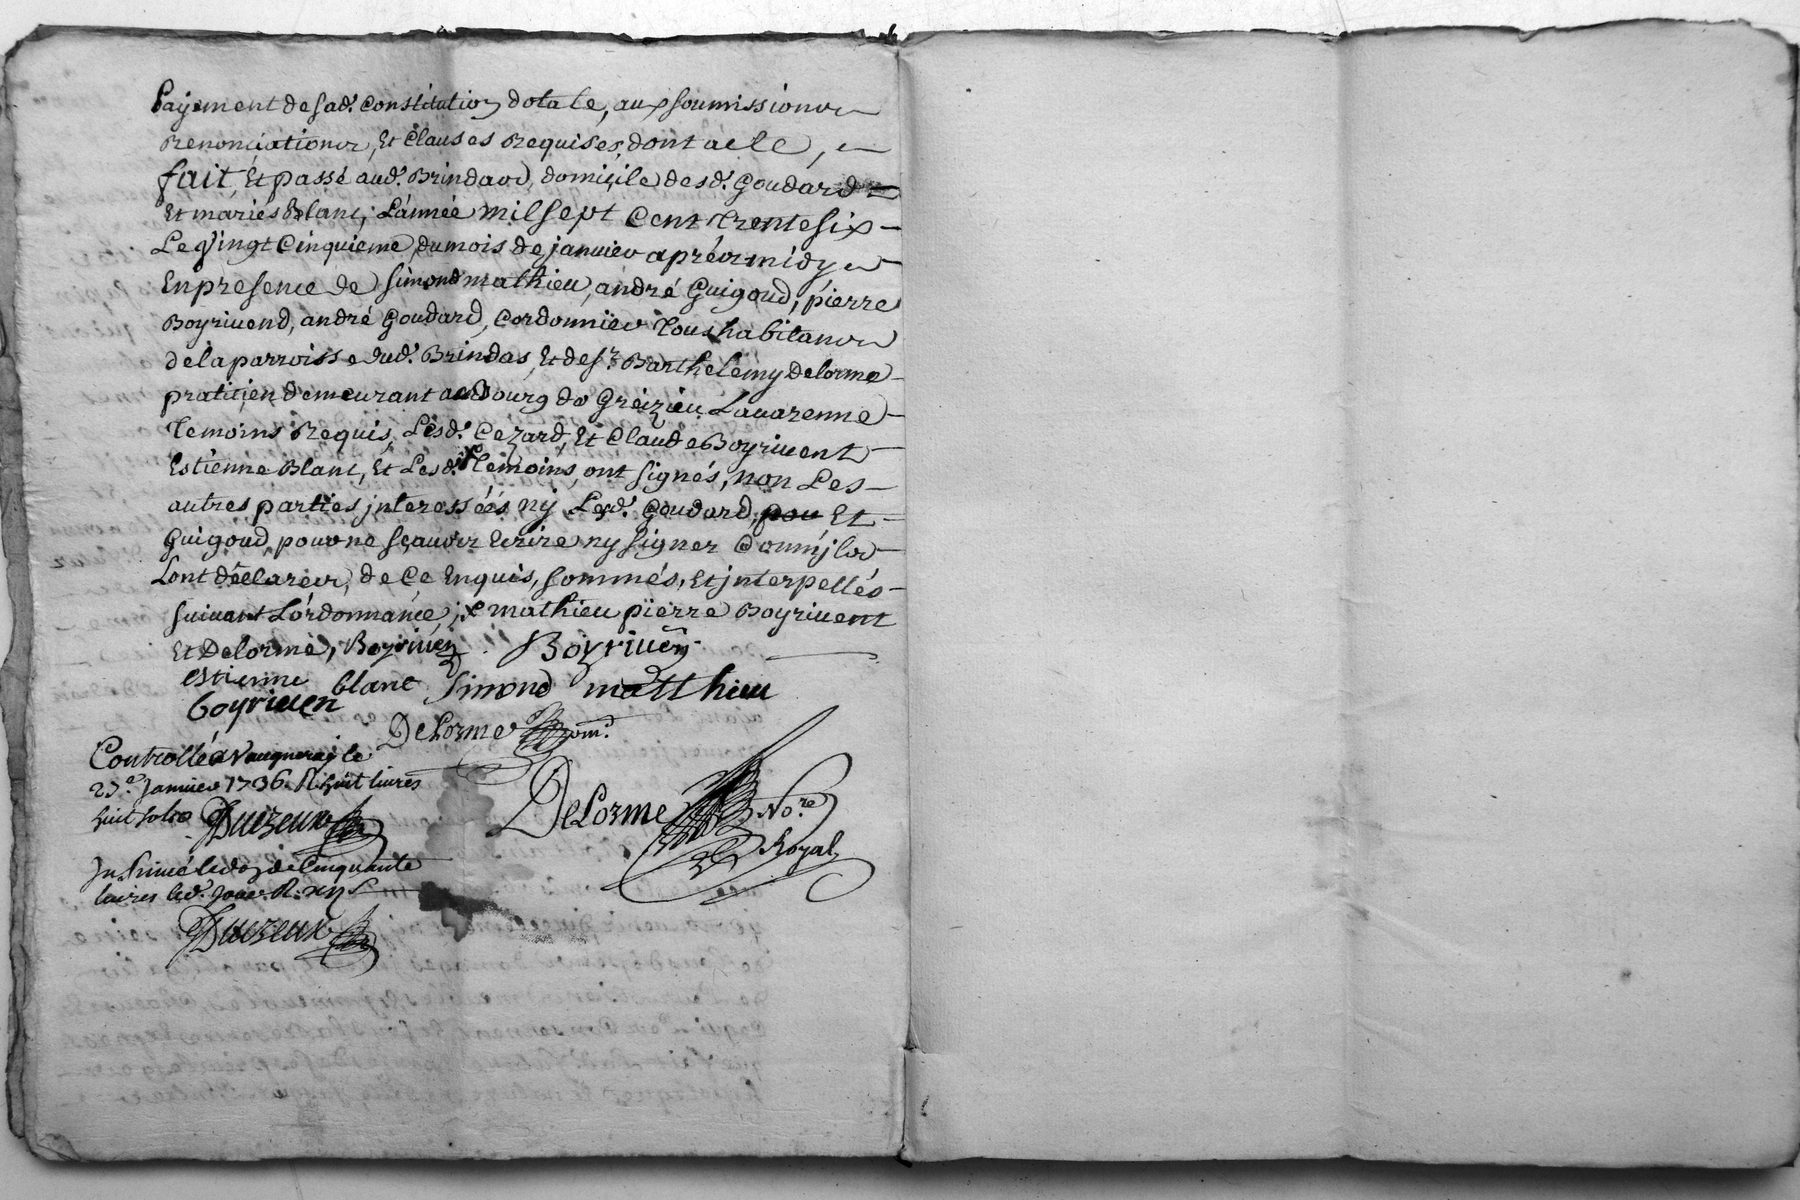 Payement de sad.t Constitution dotale, aux soumissions
Renonciations, Et Clauses Requises, dont acte,
fait, Et passé aud.t Brindas, domicile desd.t Goudard
Et mariés Blanc, L'année mil sept Cent Trente Six
Le Vingt Cinquieme du mois de janvier après midy
En presence de Simond mathieu, andré Guigoud, pierre
Boyrivend, andré Goudard, Cordonnier Tous habitans
de la parroisse dud.t Brindas, Et de s.r Barthelemy Delorme
praticien demeurant au Bourg de Greizieu Lavarenne
Temoins Requis, Lesd.t Cezard, Et Claude Boyrivent
Estienne Blanc, Et Lesd.t x Temoins, ont signés, non Les
autres parties jnteressées ny Lesd.t Goudard, pou Et
Guigoud, pour ne sçavoir Ecrire ny signer Comm'jls
L'ont déclarés, de Ce Enquis, sommés, Et jnterpellés
suivant L'ordonnance; x mathieu pierre Boyrivent
Et Delorme, Boyriven Boyriven
estienne blanc Simond matthieu
boyriven
DeLorme
Controllé a Vaugneray le
25.e Janvier 1736. R. huit livres
huit sols Duczeux
DeLorme No.re
Royal
Insinué le don de Cinquante
livres led. Jour. R.
Duczeux